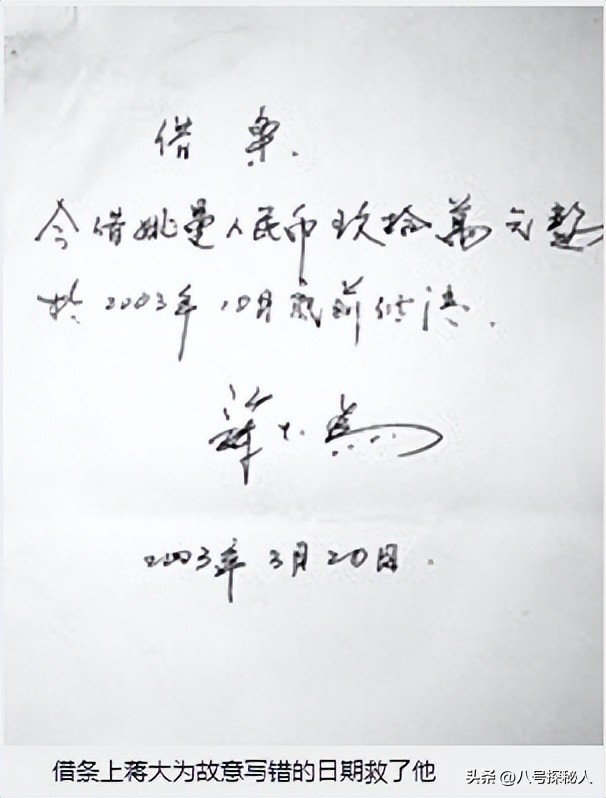 借条.
今借姚曼人民币玖拾萬元整
於2003年10月底前付清.
蒋大为
2003年3月20日.
借条上蒋大为故意写错的日期救了他
头条 @八号探秘人